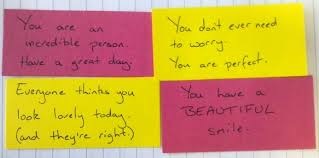 You are an
incredible person.
Have a great day.
You don't ever need
to worry.
You are perfect.
Everyone thinks you
look lovely today.
(and they're right.)
You have a
BEAUTIFUL
smile.